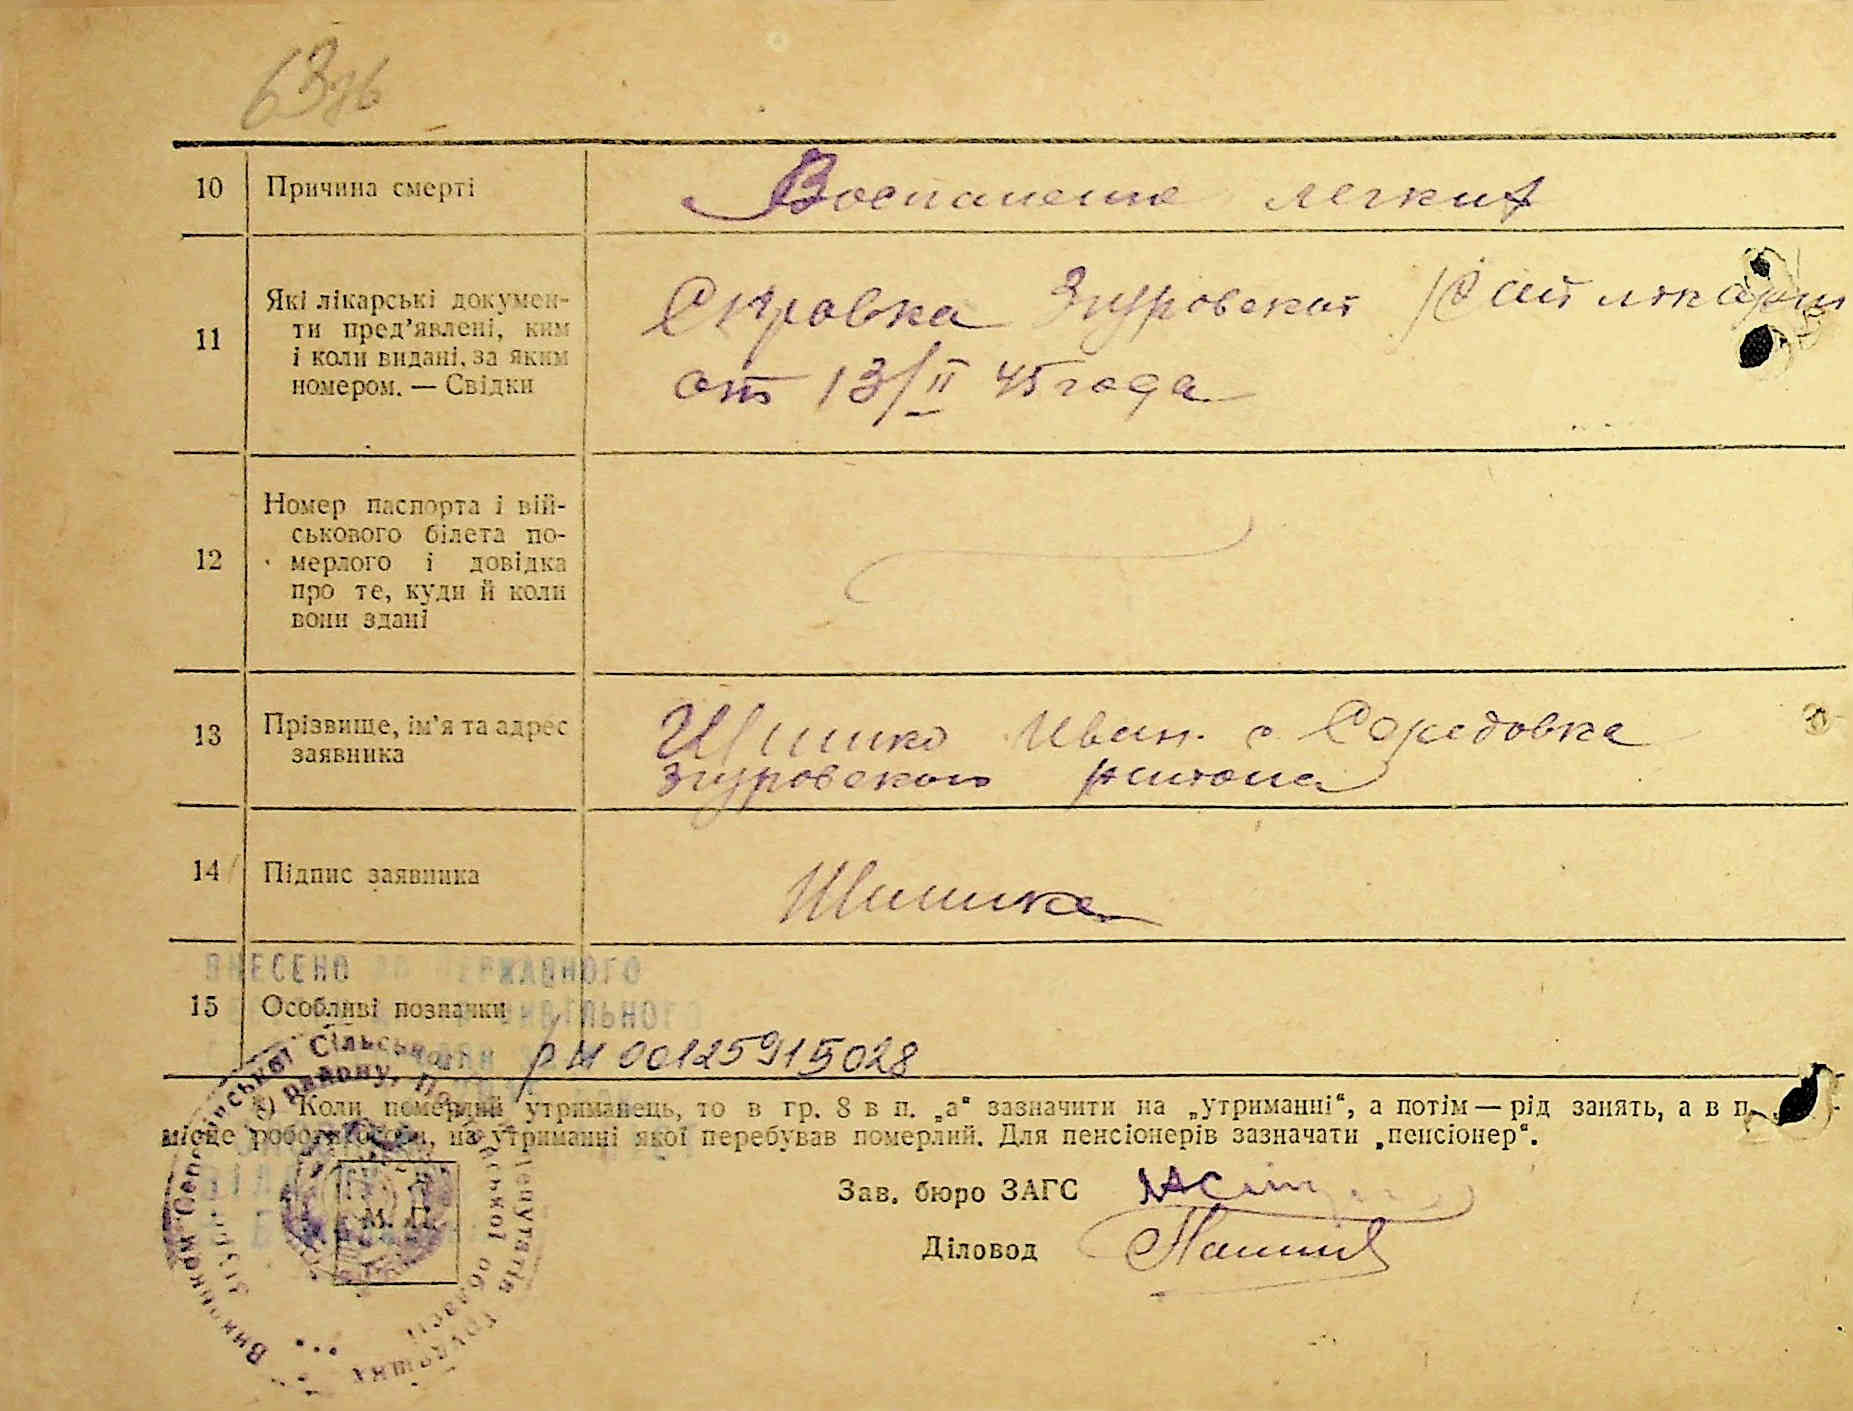 63зв
10 Причина смерті Воспаление легких
11 Які лікарські докумен-
ти пред’явлені, ким
і коли видані, за яким
номером. — Свідки
Справка Згуровской
от 13/II 45 года
12 Номер паспорта і вій-
ськового білета по-
мерлого і довідка
про те, куди й коли
вони здані
13 Прізвище, ім’я та адрес
заявника
Шишко Иван. с Середовка
Згуровского района
14 Підпис заявника Шишка
ВНЕСЕНО ДО ДЕРЖАВНОГО
15 Особливі позначки
00125915028
*) Коли померлий утриманець, то в гр. 8 в п. „а“ зазначити на „утриманні“, а потім — рід занять, а в п.
місце роботи особи, на утриманні якої перебував померлий. Для пенсіонерів зазначати „пенсіонер“.
Зав. бюро ЗАГС
Діловод
М. П.
Виконком Сільської Депутатів Трудящих
району, області